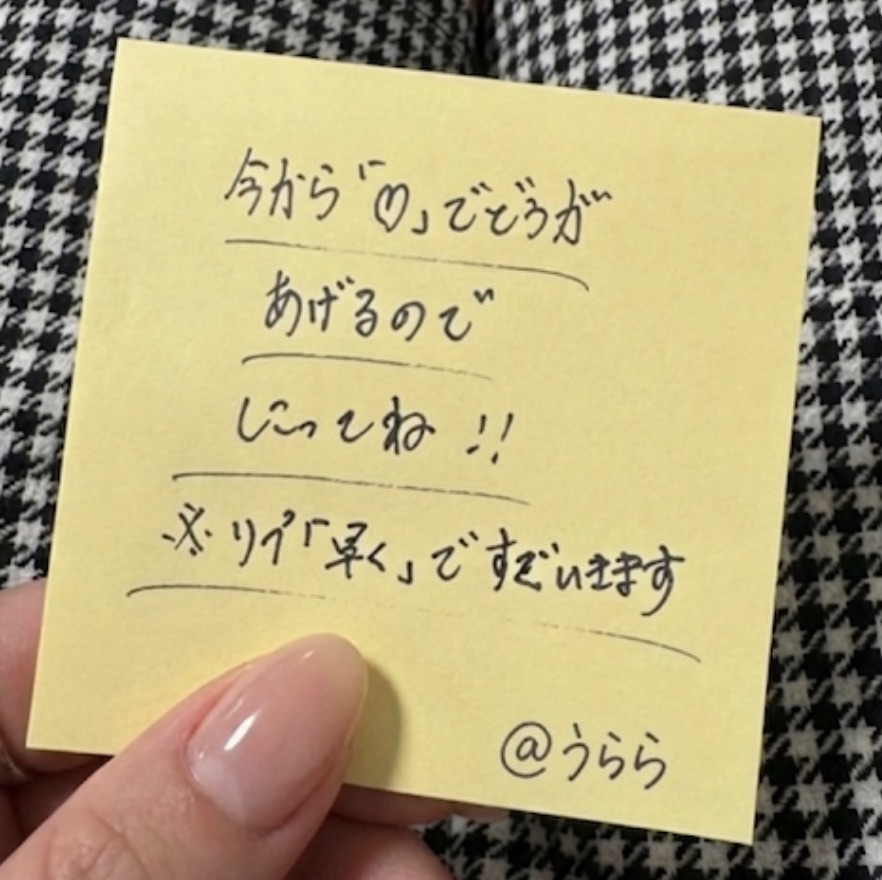 今から「♡」でどうが
あげるので
しこってね!!
※リプ「早く」ですぐいきます
@うらら